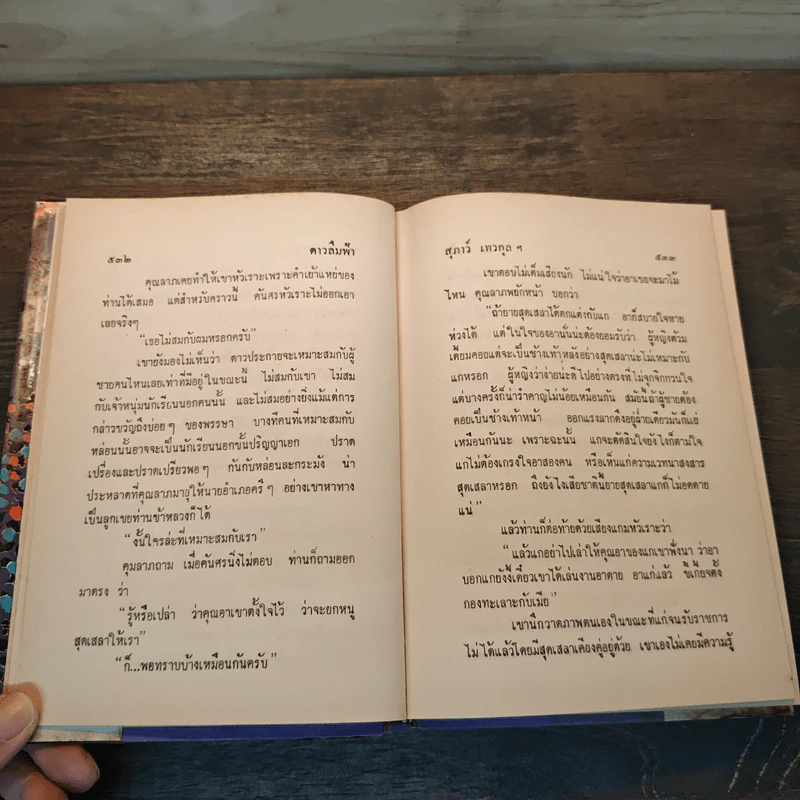 ๕๓๒
ดาวลืมฟ้า
คุณลาภเคยทำให้เขาหัวเราะเพราะคำเย้าแหย่ของ
ท่านได้เสมอ แต่สำหรับคราวนี้ คันศรหัวเราะไม่ออกเอา
เลยจริงๆ
“เธอไม่สมกับผมหรอกครับ”
เขายังมองไม่เห็นว่า ดาวประกายจะเหมาะสมกับผู้
ชายคนไหนเลยเท่าที่มีอยู่ในขณะนี้ ไม่สมกับเขา ไม่สม
กับเจ้าหนุ่มนักเรียนนอกคนนั้น และไม่สมอย่างยิ่งแม้แต่การ
กล่าวขวัญถึงบ่อยๆ ของพรรษา บางทีคนที่เหมาะสมกับ
หล่อนนั้นอาจจะเป็นนักเรียนนอกขั้นปริญญาเอก ปราด
เปรื่องและปราดเปรียวพอๆ กันกับหล่อนละกระมัง น่า
ประหลาดที่คุณลาภมายุให้นายอำเภอครึๆ อย่างเขาหาทาง
เป็นลูกเขยท่านข้าหลวงก็ได้
“งั้นใครล่ะที่เหมาะสมกับเรา”
คุณลาภถาม เมื่อคันศรนิ่งไม่ตอบ ท่านก็ถามออก
มาตรง ว่า
“รู้หรือเปล่า ว่าคุณอาเขาตั้งใจไว้ ว่าจะยกหนู
สุดเสลาให้เรา”
“ก็...พอทราบบ้างเหมือนกันครับ”
สุภาว์ เทวกุล ฯ
๕๓๓
เขาตอบไม่เต็มเสียงนัก ไม่แน่ใจว่าอาเขยจะมาไม้
ไหน คุณลาภพยักหน้า บอกว่า
“ถ้ายายสุดเสลาได้ตกแต่งกับแก อาก็สบายใจหาย
ห่วงได้ แต่ในใจของอานั่นน่ะต้องยอมรับว่า ผู้หญิงต้วม
เตี้ยมคอยแต่จะเป็นช้างเท้าหลังอย่างสุดเสลาน่ะไม่เหมาะกับ
แกหรอก ผู้หญิงว่าง่ายน่ะดีไปอย่างตรงที่ไม่จุกจิกกวนใจ
แต่บางครั้งก็น่ารำคาญไม่น้อยเหมือนกัน สมัยนี้ถ้าผู้ชายต้อง
คอยเป็นช้างเท้าหน้า ออกแรงลากดึงอยู่ฝ่ายเดียวมันก็แย่
เหมือนกันนะ เพราะฉะนั้น แกจะตัดสินใจยังไงก็ตามใจ
แกไม่ต้องเกรงใจอาสองคน หรือเห็นแก่ความเวทนาสงสาร
สุดเสลาหรอก ถึงยังไงเสียชาตินี้ยายสุดเสลาแกก็ไม่อดตาย
แน่”
แล้วท่านก็ต่อท้ายด้วยเสียงแกมหัวเราะว่า
“แล้วแกอย่าไปเล่าให้คุณอาของแกเขาฟังนา ว่าอา
บอกแกยังงี้เดี๋ยวเขาได้เล่นงานอาตาย อาแก่แล้ว ขี้เกียจตั้ง
กองทะเลาะกับเมีย”
เขานึกวาดภาพตนเองในขณะที่แก่จนรับราชการ
ไม่ได้แล้วโดยมีสุดเสลาเคียงคู่อยู่ด้วย เขาเองไม่เคยมีความรู้